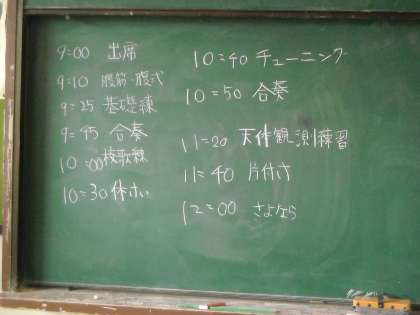 9=00 出席
9=10 腹筋・腹式
9=25 基礎練
9=45 合奏
10=00 校歌練
10=30 休けい
10=40 チューニング
10=50 合奏
11=20 天体観測練習
11=40 片付け
12=00 さよなら